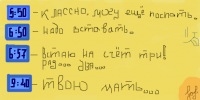 5:50 - классно, могу ещё поспать.
6:50 - надо вставать.
6:57 - встаю на счёт три!
раз... два...
9:40 - твою мать...